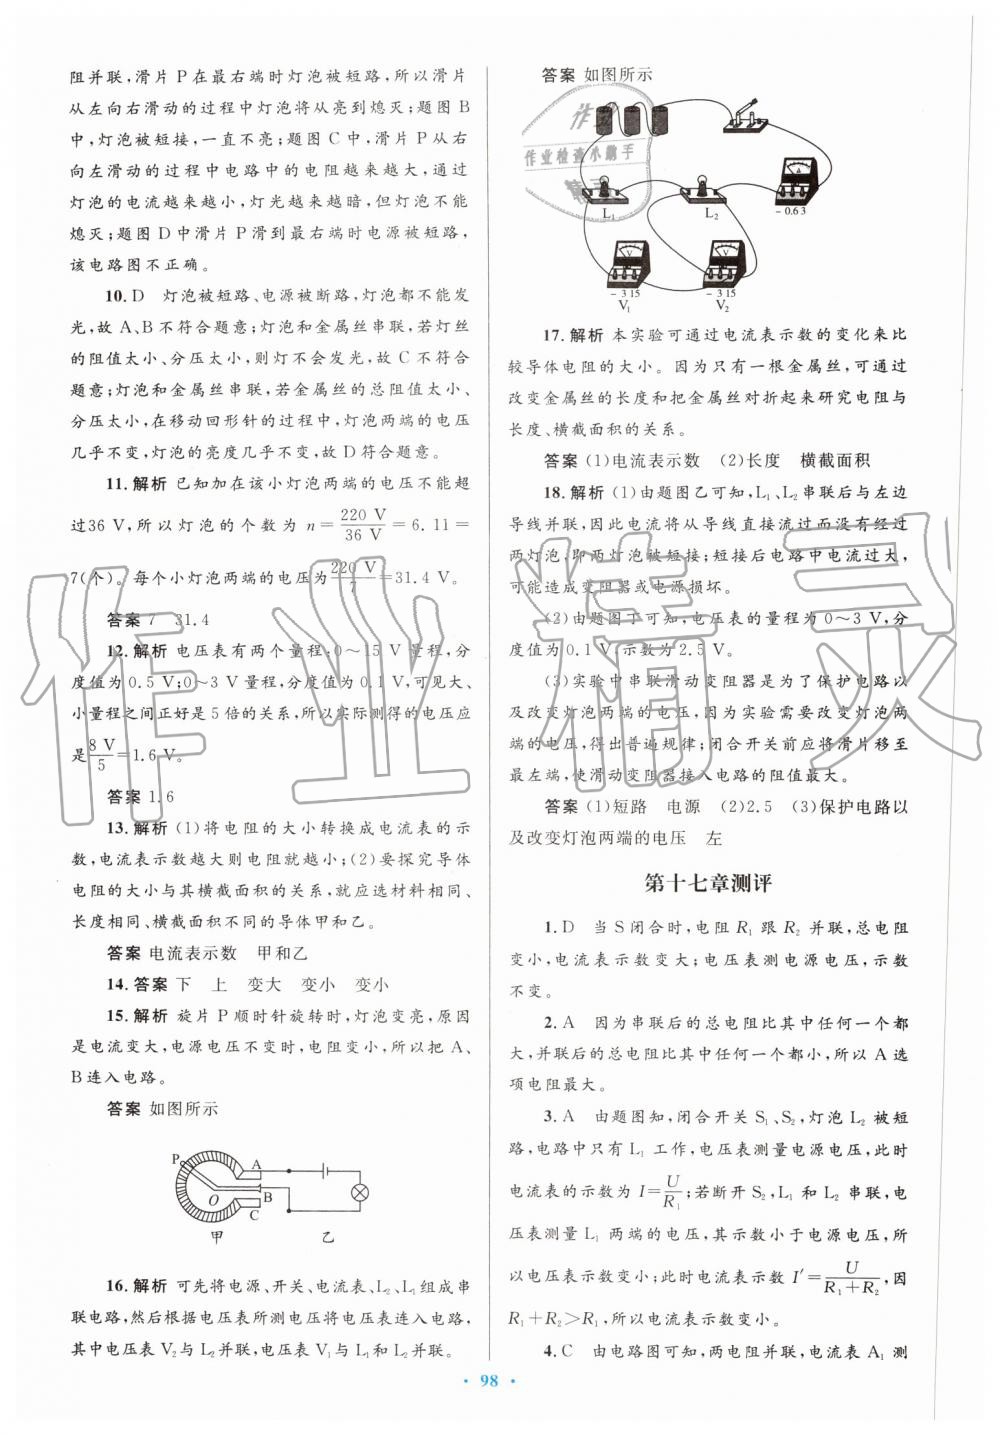 阻并联,滑片 P 在最右端时灯泡被短路,所以滑片
从左向右滑动的过程中灯泡将从亮到熄灭;题图 B
中,灯泡被短接,一直不亮;题图 C 中,滑片 P 从右
向左滑动的过程中电路中的电阻越来越大,通过
灯泡的电流越来越小,灯光越来越暗,但灯泡不能
熄灭;题图 D 中滑片 P 滑到最右端时电源被短路,
该电路图不正确。
10. D 灯泡被短路、电源被断路,灯泡都不能发
光,故 A、B 不符合题意;灯泡和金属丝串联,若灯丝
的阻值太小、分压太小,则灯不会发光,故 C 不符合
题意;灯泡和金属丝串联,若金属丝的总阻值太小、
分压太小,在移动回形针的过程中,灯泡两端的电压
几乎不变,灯泡的亮度几乎不变,故 D 符合题意。
11. 解析 已知加在该小灯泡两端的电压不能超
过36 V,所以灯泡的个数为 n=220 V/36 V=6.11=
7(个)。每个小灯泡两端的电压为220 V/7=31.4 V。
答案 7 31.4
12. 解析 电压表有两个量程:0～15 V 量程,分
度值为 0.5 V;0～3 V 量程,分度值为 0.1 V,可见大、
小量程之间正好是 5 倍的关系,所以实际测得的电压应
是8 V/5=1.6 V。
答案 1.6
13. 解析 (1)将电阻的大小转换成电流表的示
数,电流表示数越大则电阻就越小;(2)要探究导体
电阻的大小与其横截面积的关系,就应选材料相同、
长度相同、横截面积不同的导体甲和乙。
答案 电流表示数 甲和乙
14. 答案 下 上 变大 变小 变小
15. 解析 旋片 P 顺时针旋转时,灯泡变亮,原因
是电流变大,电源电压不变时,电阻变小,所以把 A、
B连入电路。
答案 如图所示
P A B C O
甲 乙
16. 解析 可先将电源、开关、电流表、L₂、L₁组成串
联电路,然后根据电压表所测电压将电压表连入电路,
其中电压表 V₂与 L₂并联,电压表 V₁与 L₁并联。
答案 如图所示
作业检查小助手
A
L₁ L₂ - 0.6 3
V V
- 3 15 - 3 15
V₁ V₂
17. 解析 本实验可通过电流表示数的变化来比
较导体电阻的大小。因为只有一根金属丝,可通过
改变金属丝的长度和把金属丝对折起来研究电阻与
长度、横截面积的关系。
答案 (1)电流表示数 (2)长度 横截面积
18. 解析 (1)由题图乙可知,L₁、L₂串联后与左边
导线并联,因此电流将从导线直接流过而没有经过
两灯泡,即两灯泡被短接;短接后电路中电流过大,
可能造成变阻器或电源损坏。
(2)由题图丁可知,电压表的量程为 0～3 V,分
度值为 0.1 V,示数为 2.5 V。
(3)实验中串联滑动变阻器是为了保护电路以
及改变灯泡两端的电压,因为实验需要改变灯泡两
端的电压,得出普遍规律;闭合开关前应将滑片移至
最左端,使滑动变阻器接入电路的阻值最大。
答案 (1)短路 电源 (2)2.5 (3)保护电路以
及改变灯泡两端的电压 左
第十七章测评
1. D 当 S闭合时,电阻 R₁ 跟 R₂ 并联,总电阻
变小,电流表示数变大;电压表测电源电压,示数
不变。
2. A 因为串联后的总电阻比其中任何一个都
大,并联后的总电阻比其中任何一个都小,所以 A 选
项电阻最大。
3. A 由题图知,闭合开关 S₁、S₂,灯泡 L₂ 被短
路,电路中只有 L₁ 工作,电压表测量电源电压,此时
电流表的示数为 I=U/R₁;若断开 S₂,L₁ 和 L₂ 串联,电
压表测量 L₁ 两端的电压,其示数小于电源电压,所
以电压表示数变小;此时电流表示数 I′=U/(R₁+R₂),因
R₁+R₂>R₁,所以电流表示数变小。
4. C 由电路图可知,两电阻并联,电流表 A₁ 测
· 98 ·
作业精灵